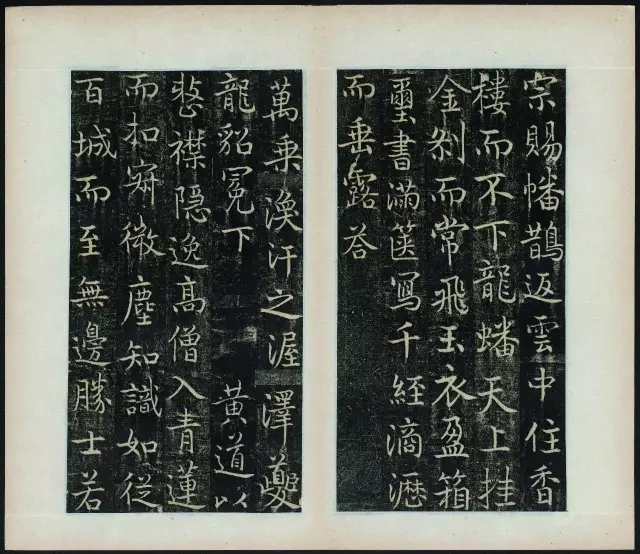 宗賜幡鵲返雲中住香
樓而不下龍蟠天上挂
金刹而常飛玉衣盈箱
璽書滿篋寫千経滴瀝
而垂露荅
萬乗渙汗之渥澤夔
龍貂冕下 黄道以
整襟隱逸髙僧入青蓮
而扣寂微塵知識如從
百城而至無邊勝士若